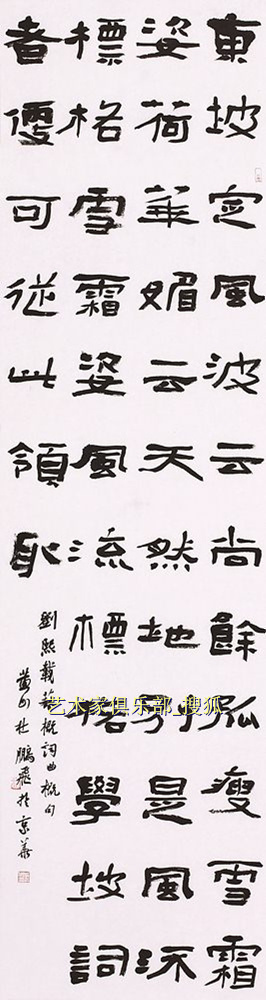 東坡定風波云尚餘孤瘦雪霜
姿荷華媚云天然地別是風流
標格雪霜姿風流標格學坡詞
者便可從此領取
劉熙載藝概詞曲概句
杜鵬飛於京華
艺术家俱乐部_搜狐